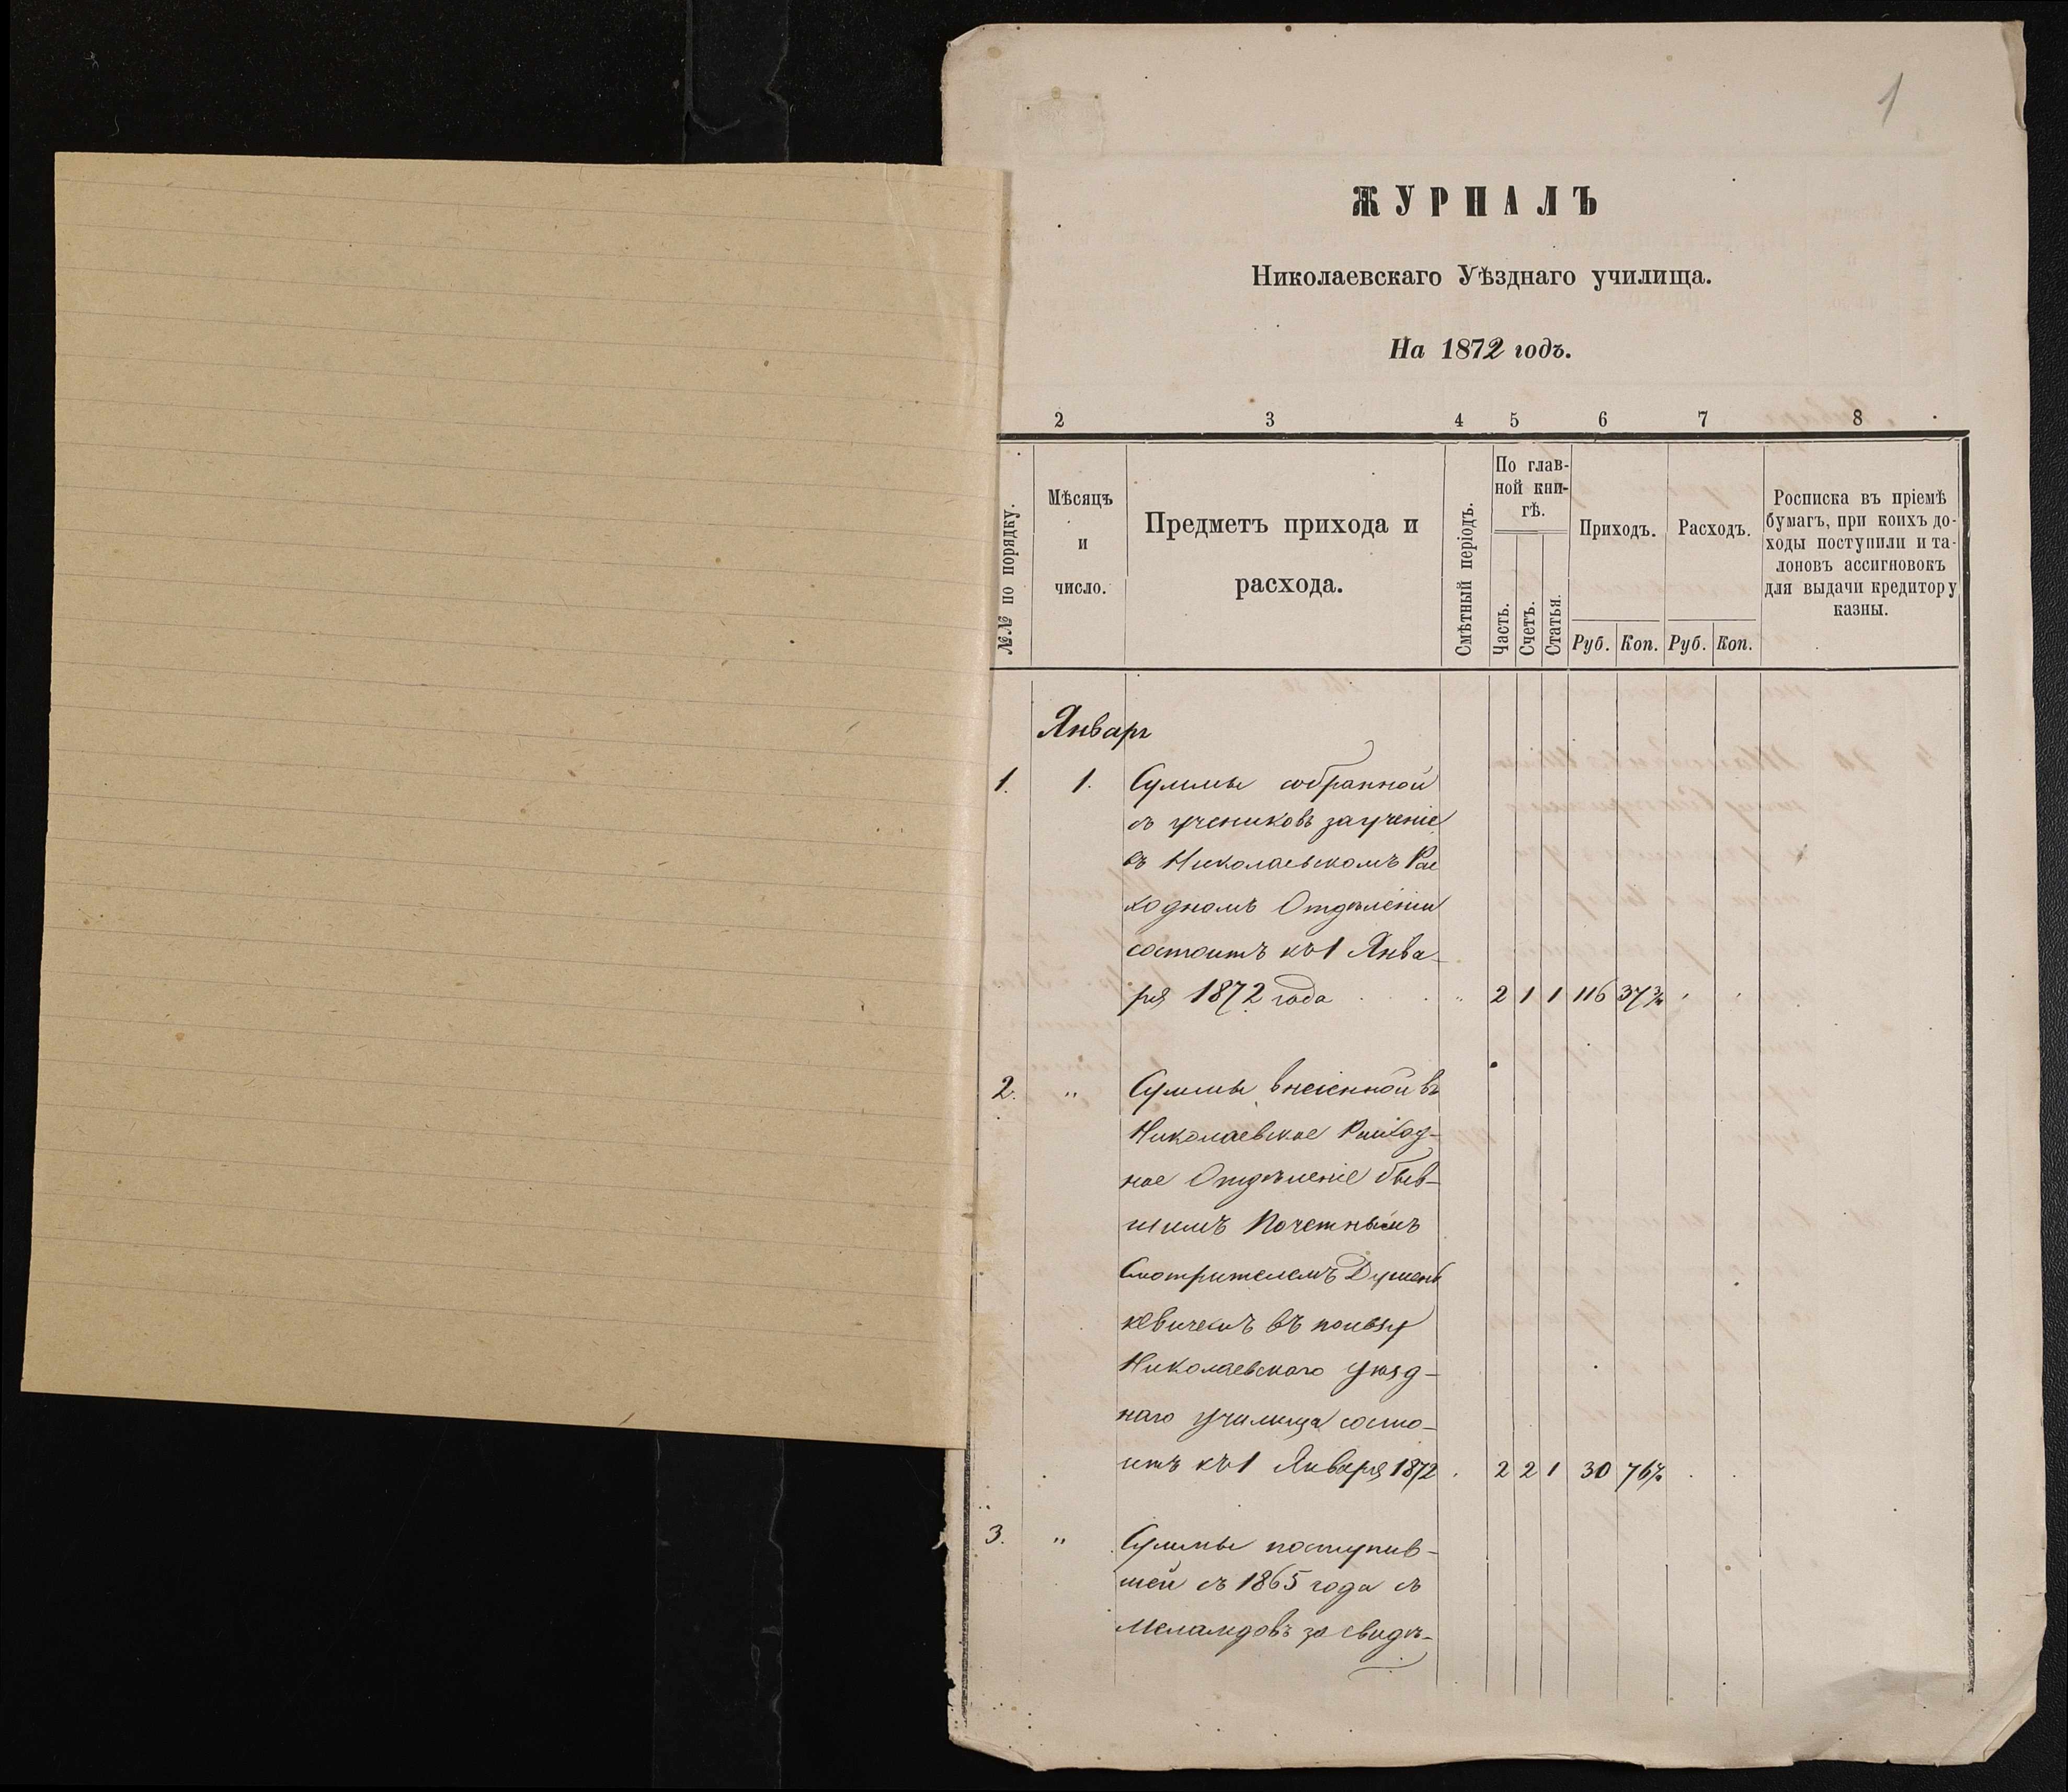 1
ЖУРНАЛЪ
Николаевскаго Уѣзднаго училища.
На 1872 годъ.
2 3 4 5 6 7 8
№№ по порядку.
Мѣсяцъ
и
число.
Предметъ прихода и
расхода.
Смѣтный періодъ.
По глав-
ной кни-
гѣ.
Часть.
Счетъ.
Статья.
Приходъ.
Руб. Коп.
Расходъ.
Руб. Коп.
Росписка въ пріемѣ
бумагъ, при коихъ до-
ходы поступили и та-
лоновъ ассигновокъ
для выдачи кредитору
казны.
Январь
1. 1. Суммы собранной
съ учениковъ за ученіе
въ Николаевскомъ Рас
ходномъ Отдѣленіи
состоитъ къ 1 Янва-
ря 1872 года " 2 1 1 116 37
2. " Суммы внесенной въ
Николаевское Расход-
ное Отдѣленіе быв-
шимъ Почетнымъ
Смотрителемъ
кевичемъ въ пользу
Николаевского уѣзд-
наго училища состо-
итъ къ 1 Января 1872 2 2 1 30 76
3. " Суммы поступив-
шей съ 1865 года съ
Меламдовъ за свидѣ-